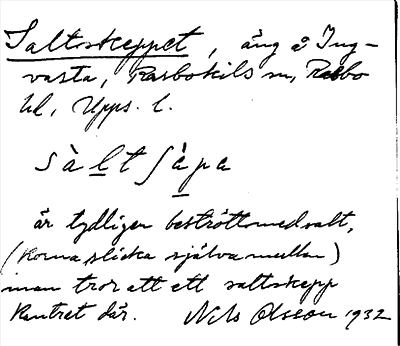 Saltskeppet, äng å Ing-
vasta, Rasbokils sn, Rasbo
hd, Upps. l.
sàltʃàpa
är tydligen bestrött med salt,
(korna slicka själva mullan)
man tror att ett saltskepp
kantret där. Nils Olsson 1932